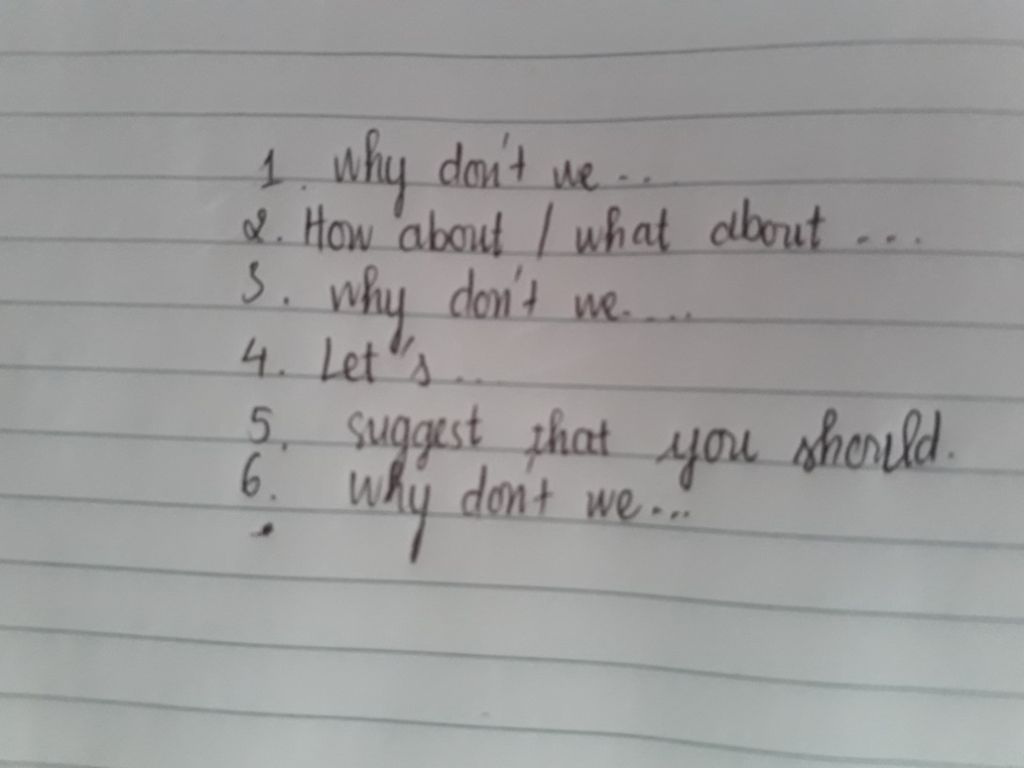 1. Why don't we ...
2. How about / what about ...
3. why don't we....
4. Let"s ...
5. suggest that you should.
6. Why don't we...